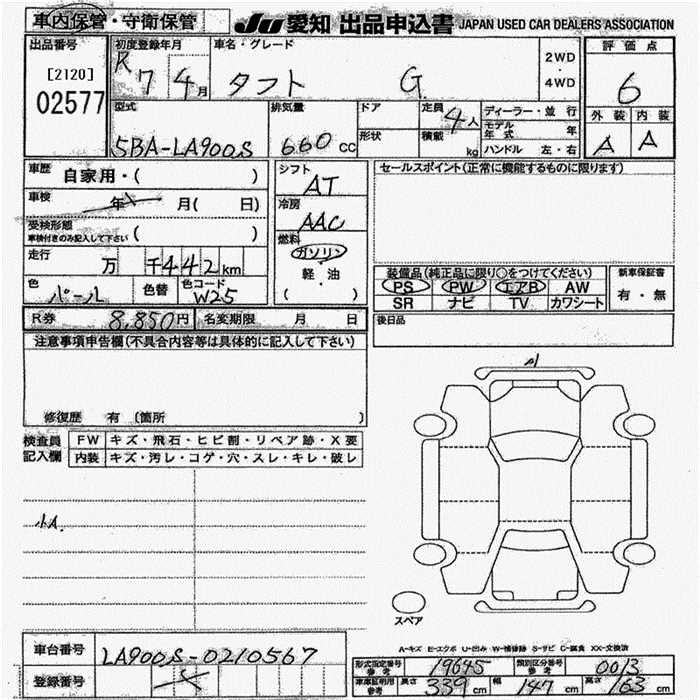 車内保管・守衛保管
JU 愛知 出品申込書 JAPAN USED CAR DEALERS ASSOCIATION
出品番号
[2120]
02577
初度登録年月
R 7 4月
車名・グレード
タフト G
2WD
・
4WD
評価点
6
外装 内装
A A
型式
5BA-LA900S
排気量
660 cc
ドア
形状
定員
4人
積載
kg
ディーラー・並行
モデル年式 年
ハンドル 左・右
車歴
自家用・( )
車検
年 月( 日)
受検形態
車検付きのみ記入して下さい ( )
走行
万 千442km
色
パール
色替
色コード
W25
シフト
AT
冷房
AAC
燃料
ガソリン
・
軽・油
( )
セールスポイント(正常に機能するものに限ります)
装備品(純正品に限り○をつけてください)
PS PW エアB AW
SR ナビ TV カワシート
新車保証書
有・無
R券 8,850円 名変期限 月 日
後日品
注意事項申告欄(不具合内容等は具体的に記入して下さい)
修復歴 有 〔箇所 〕
検査員記入欄
FW キズ・飛石・ヒビ割・リペア跡・X要
内装 キズ・汚レ・コゲ・穴・スレ・キレ・破レ
小A.
スペア
A-キズ E-エクボ U-凹み W-補修跡 S-サビ C-腐食 XX-交換済
車台番号
LA900S-0210567
登録番号
形式指定番号 参考 19645
類別区分番号 参考 0013
車庫証明用 参考 長さ 339 cm 幅 147 cm 高さ 163 cm